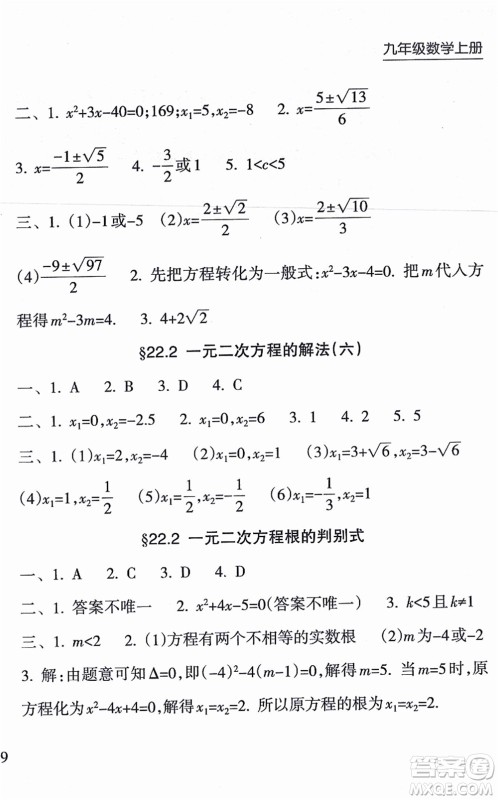 九年级数学上册
二、1. x²+3x-40=0;169;x₁=5,x₂=-8　2. x=(5±√13)/6
3. x=(-1±√5)/2　4. -3/2或1　5. 1<c<5
三、1. (1)-1或-5　(2)x=(2±√2)/2　(3)x=(2±√10)/3
(4)(-9±√97)/2　2. 先把方程转化为一般式:x²-3x-4=0. 把m代人方
程得m²-3m=4.　3. 4+2√2
§22.2 一元二次方程的解法(六)
一、1. A　2. B　3. D　4. C
二、1. x₁=0,x₂=-2.5　2. x₁=0,x₂=6　3. 1　4. 2　5. 5
三、1. (1)x₁=2,x₂=-4　(2)x₁=0,x₂=1　(3)x₁=3+√6,x₂=3-√6
(4)x₁=1,x₂=1/2　(5)x₁=-1/3,x₂=1/2　(6)x₁=0,x₂=-1/3
§22.2 一元二次方程根的判别式
一、1. A　2. C　3. D　4. D
二、1. 答案不唯一　2. x²+4x-5=0(答案不唯一)　3. k<5且k≠1
三、1. m<2　2. (1)方程有两个不相等的实数根　(2)-4或-2
3. 解:由题意可知Δ=0,即(-4)²-4(m-1)=0,解得m=5. 当m=5时,原
方程化为x²-4x+4=0. 解得x₁=x₂=2. 所以原方程的根为x₁=x₂=2.
9